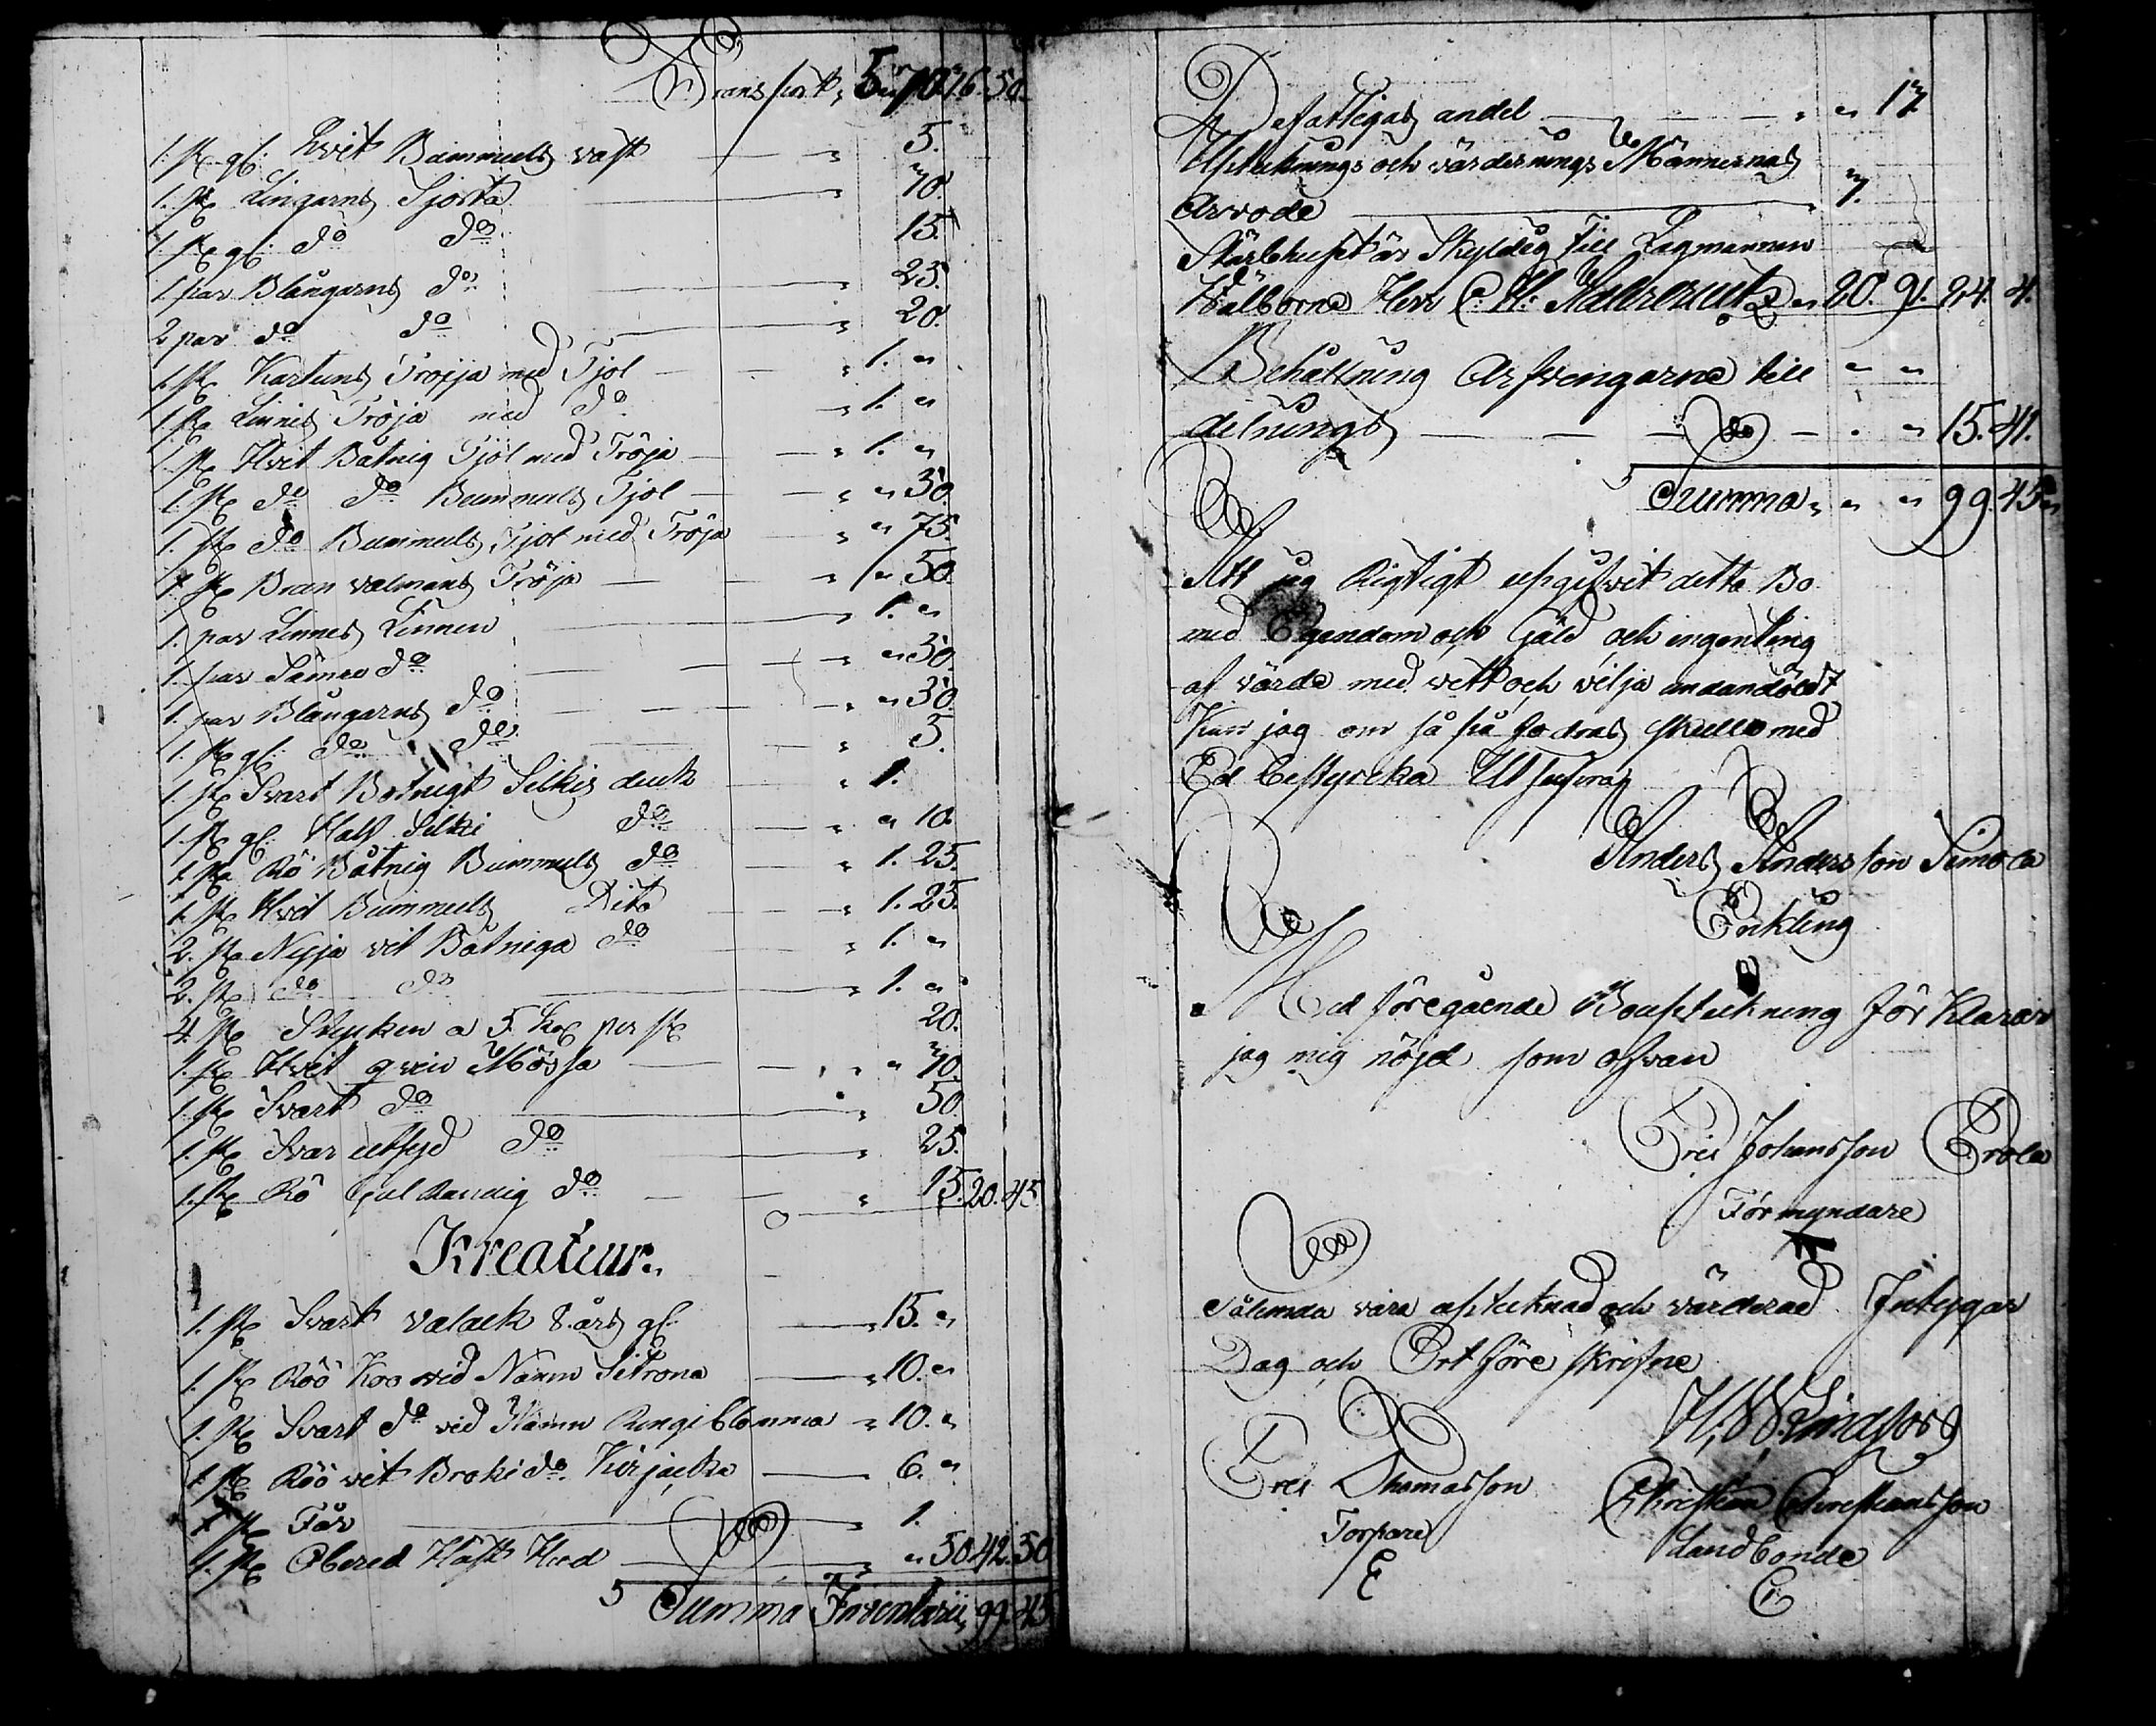 Transport, 5 70 36. 50.
1. st. gl. Hvit Bummuls väst — 5.
1. st. Lingarns Sjorta — 70.
1. st. gl. do do — 15.
1 par Blångarns do — 25.
2 par do do — 20.
1. st. Kartuns Tröjja med Tjol — 1. "
1 st. Linnes Tröja med do — 1. "
1. st. Hvit Båtnig Tjol med Tröja — 1. "
1. st. do do Bummuls Tjol — " 50.
1. st. do Bummuls Tjol med Tröja — " 75.
1 st. Brun valmans Tröja — " 50.
1. par Linnes Linnen — 1. "
1. par Sämre do — " 50.
1. par Blångarns do — " 30.
1. st. gl. do do — 5.
1. st. Svart Botnigt Silkis duk — 1.
1. st. gl. Half Silki do — " 10.
1. st. Rö Båtnig Bummuls do — 1. 25.
1. st. Hvit Bummuls Dito — 1. 25.
2. st. Nyja vit Båtniga do — 1. "
2. st. do do — 1. "
4. st. Stycken a 5. Kop per st. 20.
1. st. Hvit Mössa — " 70.
1. st. Svart do — 50.
1. st. Svar utsyd do — 25.
1. st. Rö Gul Randig do — 15. 20. 45.
Kreatur.
1. st. Svart valack 8. års gl. — 15. "
1. st. Röö Koo vid Namn Sitrona — 10. "
1. st. Svart do vid Namn Ringiblomma " 10. "
1. st. Röö vit Broki do. Kirjacka — 6. "
1 st. Får — 1.
1. st. Obered Häst Hud — " 50 42. 50
Summa Inventarii, 99. 45
De fattigas andel — " 17
Upteknings och värderings Männernas
Arvode — 7.
Stärbhuset är Skyldig till Lagmannen
Wälborne Herr C: H: 20. 91. 24. 4.
Behållning Arfvingarne till " "
delnings — " 15. 41.
Summa " " " 99. 45 "
Att jag Rigtigt upgifvit detta Bo
med Egendom och Gäld och ingenting
af värde med vett och vilja undandöldt
Kan jag om så på fodras skulle med
Ed bestyrcka Ut supra
Anders Andersson Simola
Enkling
Med föregående Boupteckning för Klarar
jag mig nöjd som ofvan
Eric Johansson Erola
Förmyndare
Sålunda vara uptecknad och värderad Intygar
Dag och Ort före skrifne
H. W. Lindfors
Eric Thomasson Christian Christiansson
Torpare Landbonde
E C